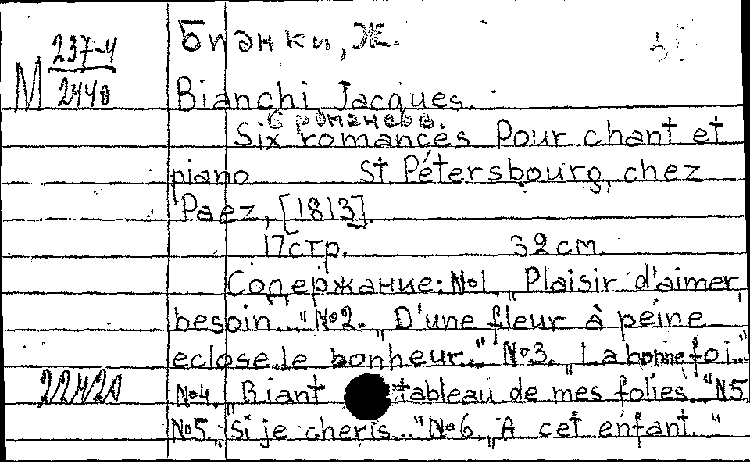 Бианки, Ж.
М 237-4
2440
Bianchi Jacques.
6 романсов.
Six romances Pour chant et
piano St Pétersbourg, chez
Paez, [1813].
17 стр. 32 cm.
Содержание: №1. „Plaisir d'aimer,
besoin..." №2. „D'une fleur à peine
eclose le bonheur." №3. „La bonne foi..."
22420 №4. „Riant tableau de mes folies..." №5
№5. „Si je cheris..." №6 „A cet enfant..."